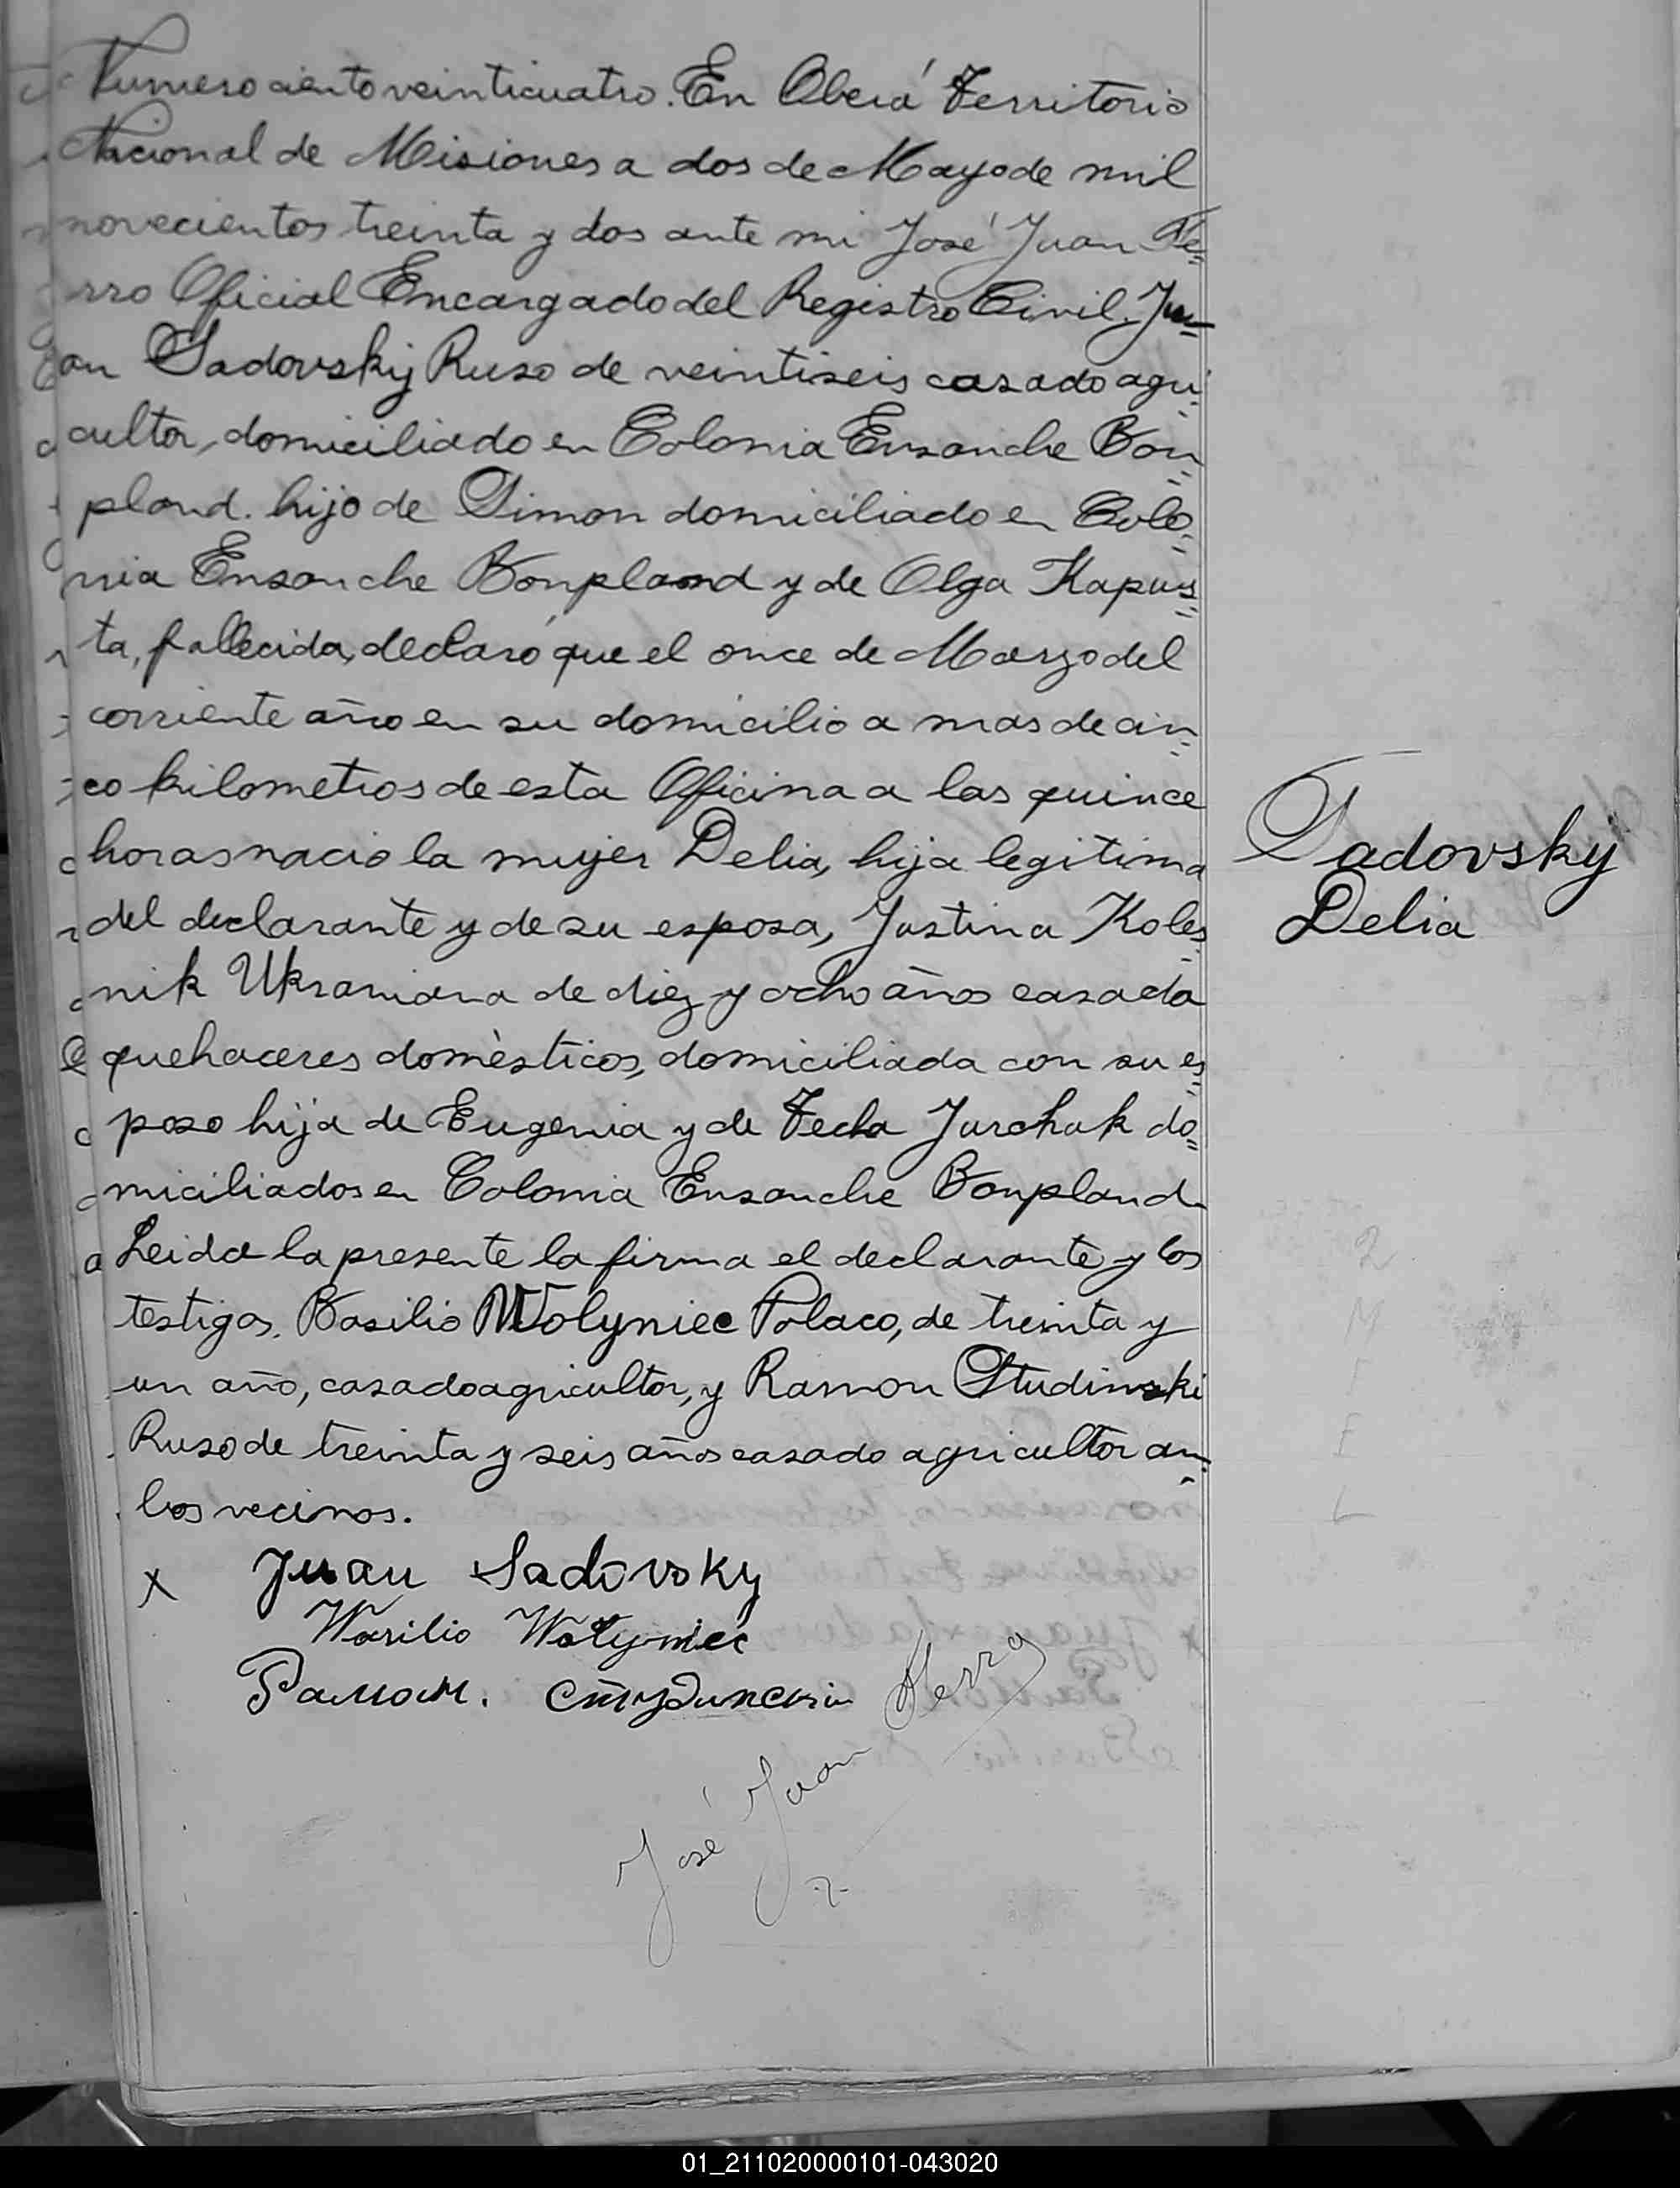 Numero ciento veinticuatro. En Oberá Territorio
Nacional de Misiones a dos de Mayo de mil
novecientos treinta y dos ante mi José Juan Fe=
rro Oficial Encargado del Registro Civil. Ju=
an Sadovsky Ruso de veintiseis casado agri=
cultor, domiciliado en Colonia Ensanche Bon=
pland. hijo de Simon domiciliado en Colo=
nia Ensanche Bonpland y de Olga Kapus=
ta, fallecida, declaró que el once de Marzo del
corriente año en su domicilio a mas de cin=
co kilometros de esta Oficina a las quince
horas nacio la mujer Delia, hija legitima
del declarante y de su esposa, Justina Koles=
nik Ukraniana de diez y ocho años casada
quehaceres domèsticos, domiciliada con su es=
poso hija de Eugenia y de Tecla Jurchuk do=
miciliados en Colonia Ensanche Bonpland
Leida la presente la firma el declarante y los
testigos, Basilio Wolyniec Polaco, de treinta y
un año, casado agricultor, y Ramon Studinski
Ruso de treinta y seis años casado agricultor am=
bos vecinos.
Sadovsky
Delia
x Juan Sadovsky
Wasilio Wołyniec
Рамон. Студинский
José Juan Ferro
2
M
F
E
L
01_211020000101-043020